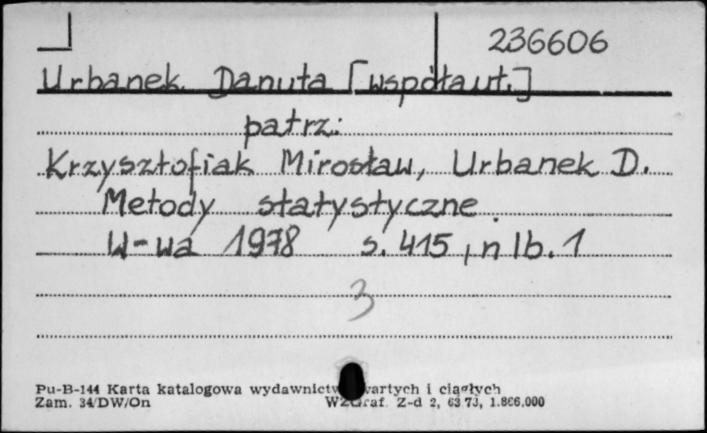 236606
Urbanek Danuta [współaut.]
patrz:
Krzysztofiak Mirosław, Urbanek D.
Metody statystyczne.
W-wa 1978 s. 415, nlb. 1
3
Pu-B-144 Karta katalogowa wydawnictw zwartych i ciągłych
Zam. 34/DW/On WZGraf. Z-d 2, 63 73, 1.866.000